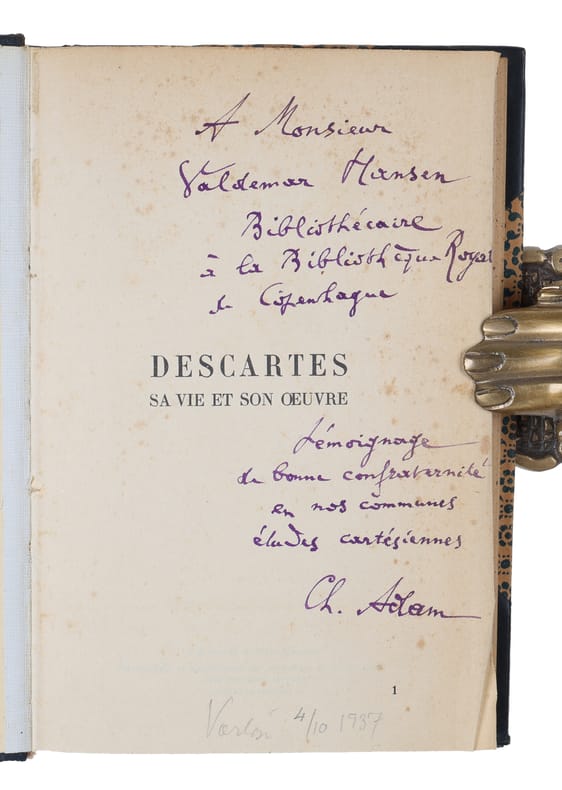 A Monsieur
Valdemar Hansen
Bibliothécaire
à la Bibliothèque Royal
de Copenhague
DESCARTES
SA VIE ET SON ŒUVRE
témoignage
de bonne confraternité
en nos communes
études cartésiennes
Ch. Adam
1
4/10 1937